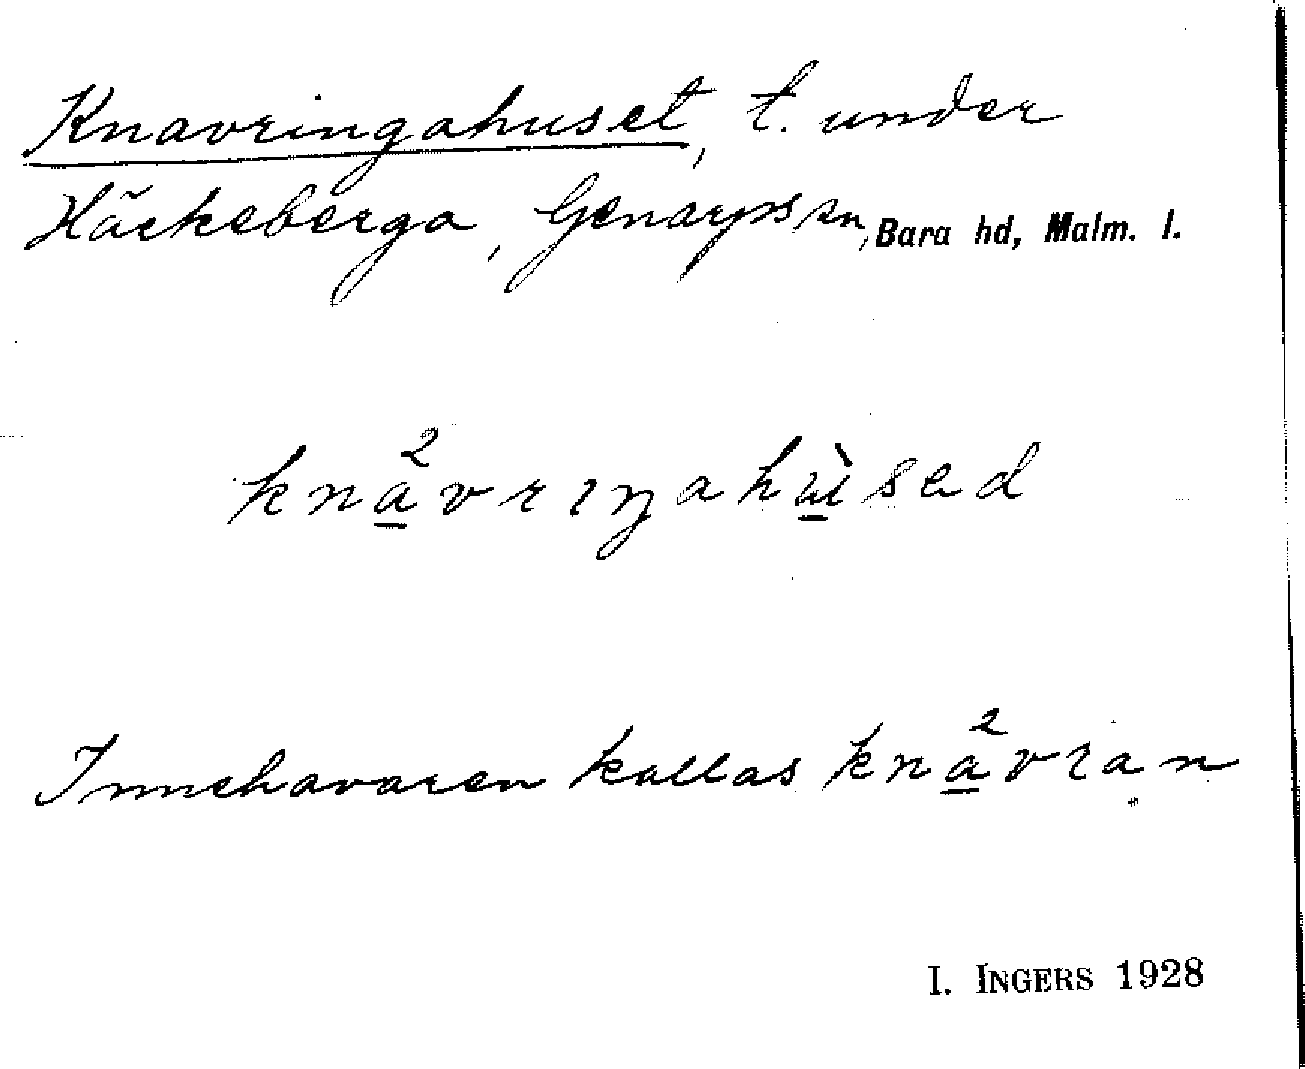 Knavringahuset, t. under
Häckeberga, Genarps sn, Bara hd, Malm. l.
kna̱²vrıŋahù̱sed
Innehavaren kallas kna̱²vrıan
I. INGERS 1928